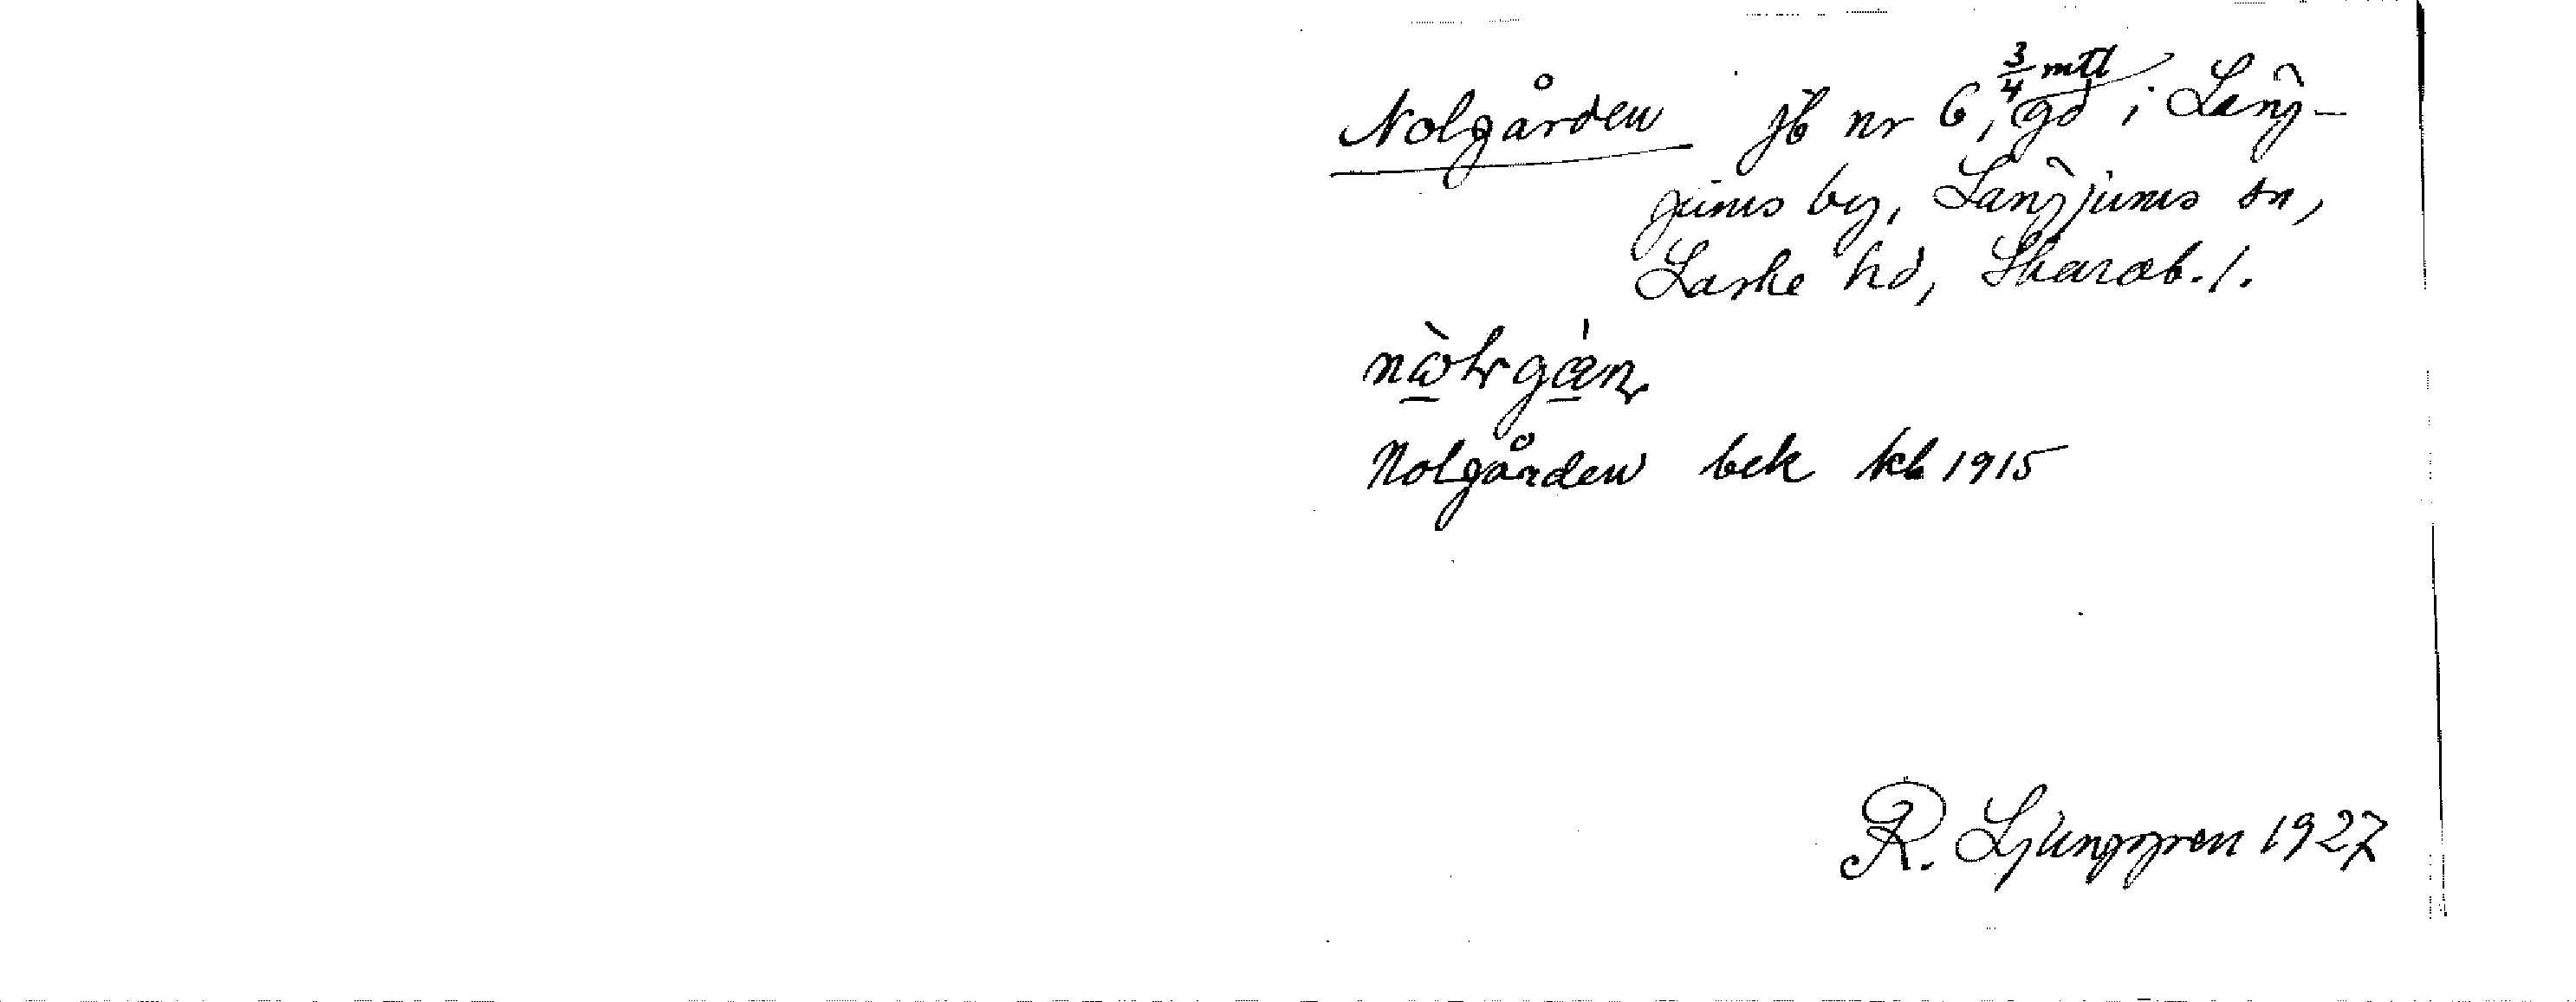 Nolgården jb nr 6, 3/4 mtl gd i Lång-
jums by, Långjums sn,
Laske hd, Skarab. l.
Nolgården bek kb 1915
R. Ljunggren 1927